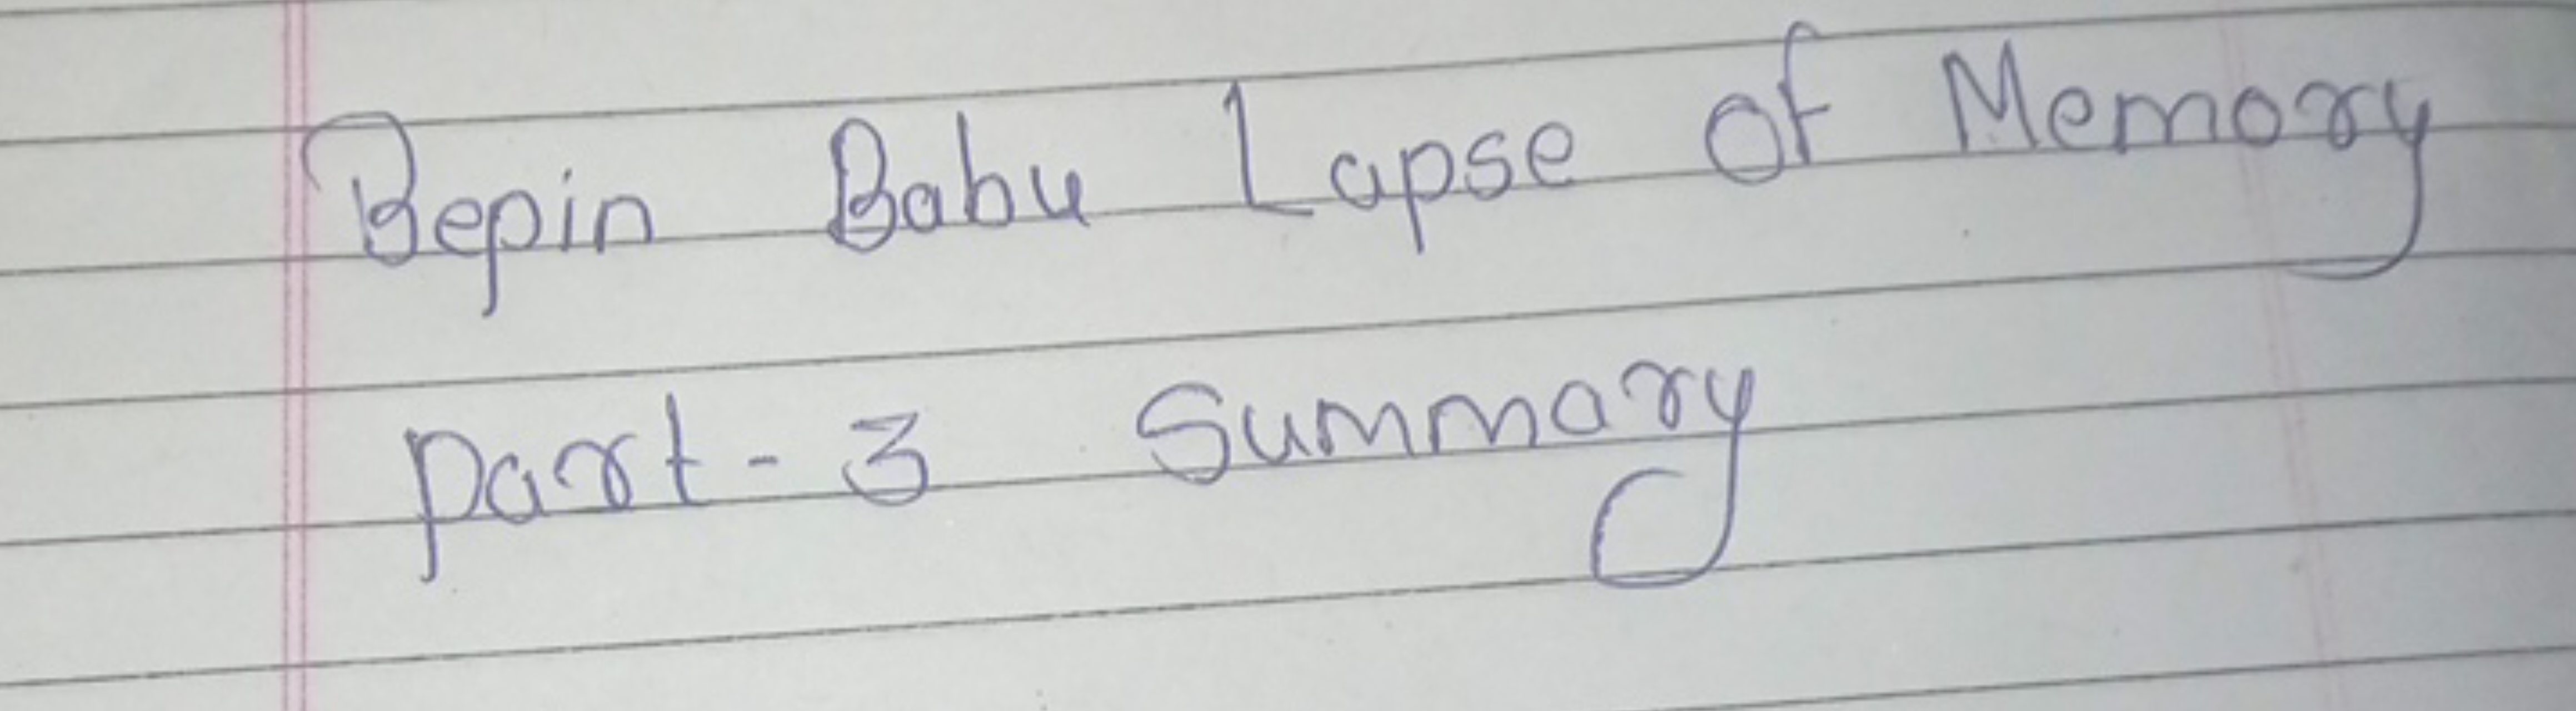 Bepin Babu Lapse of Memory
part - 3 Summary